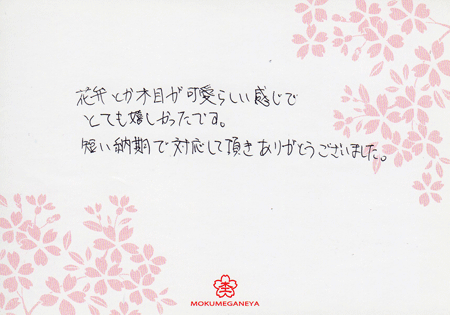 花弁とか木目が可愛らしい感じで
とても嬉しかったです。
短い納期で対応して頂きありがとうございました。
MOKUMEGANEYA